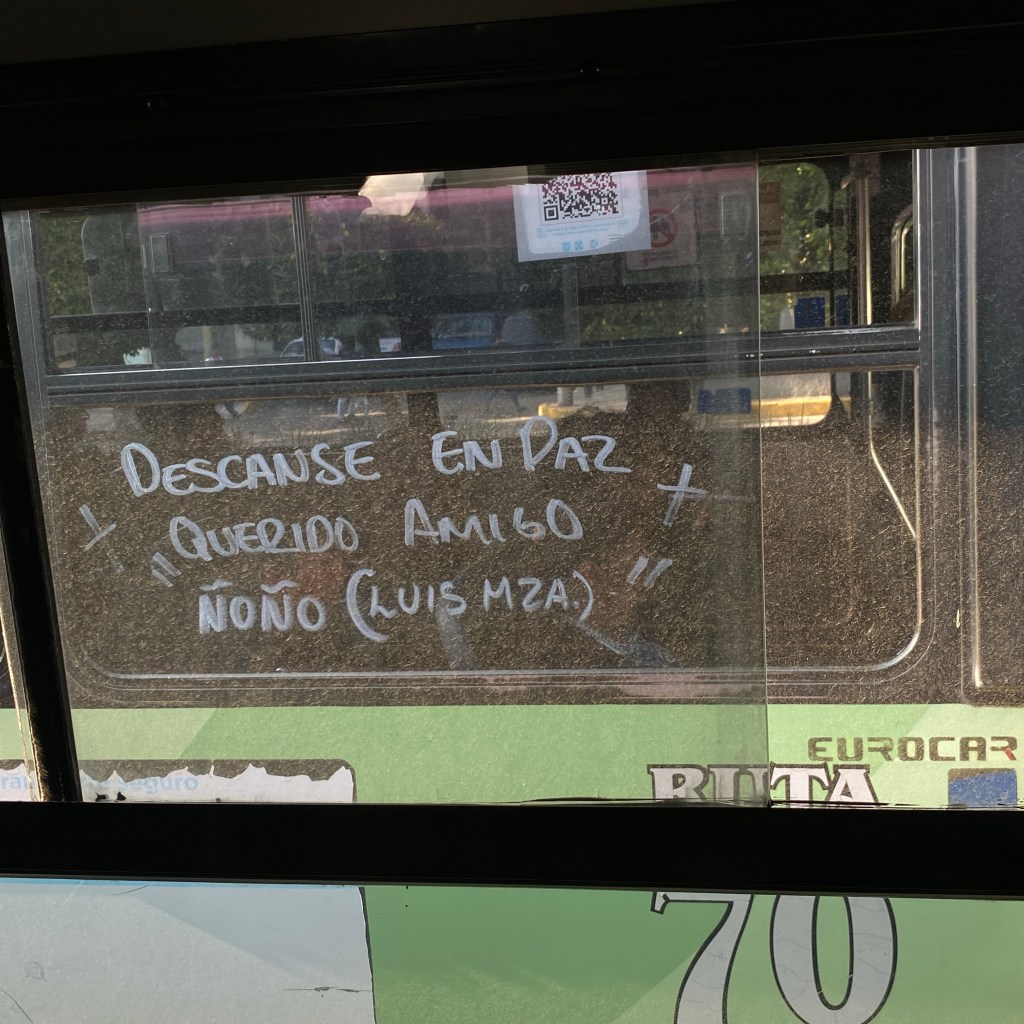 DESCANSE EN PAZ
QUERIDO AMIGO
"ÑOÑO (LUIS MZA.)"
EUROCAR
RUTA
70
eguro